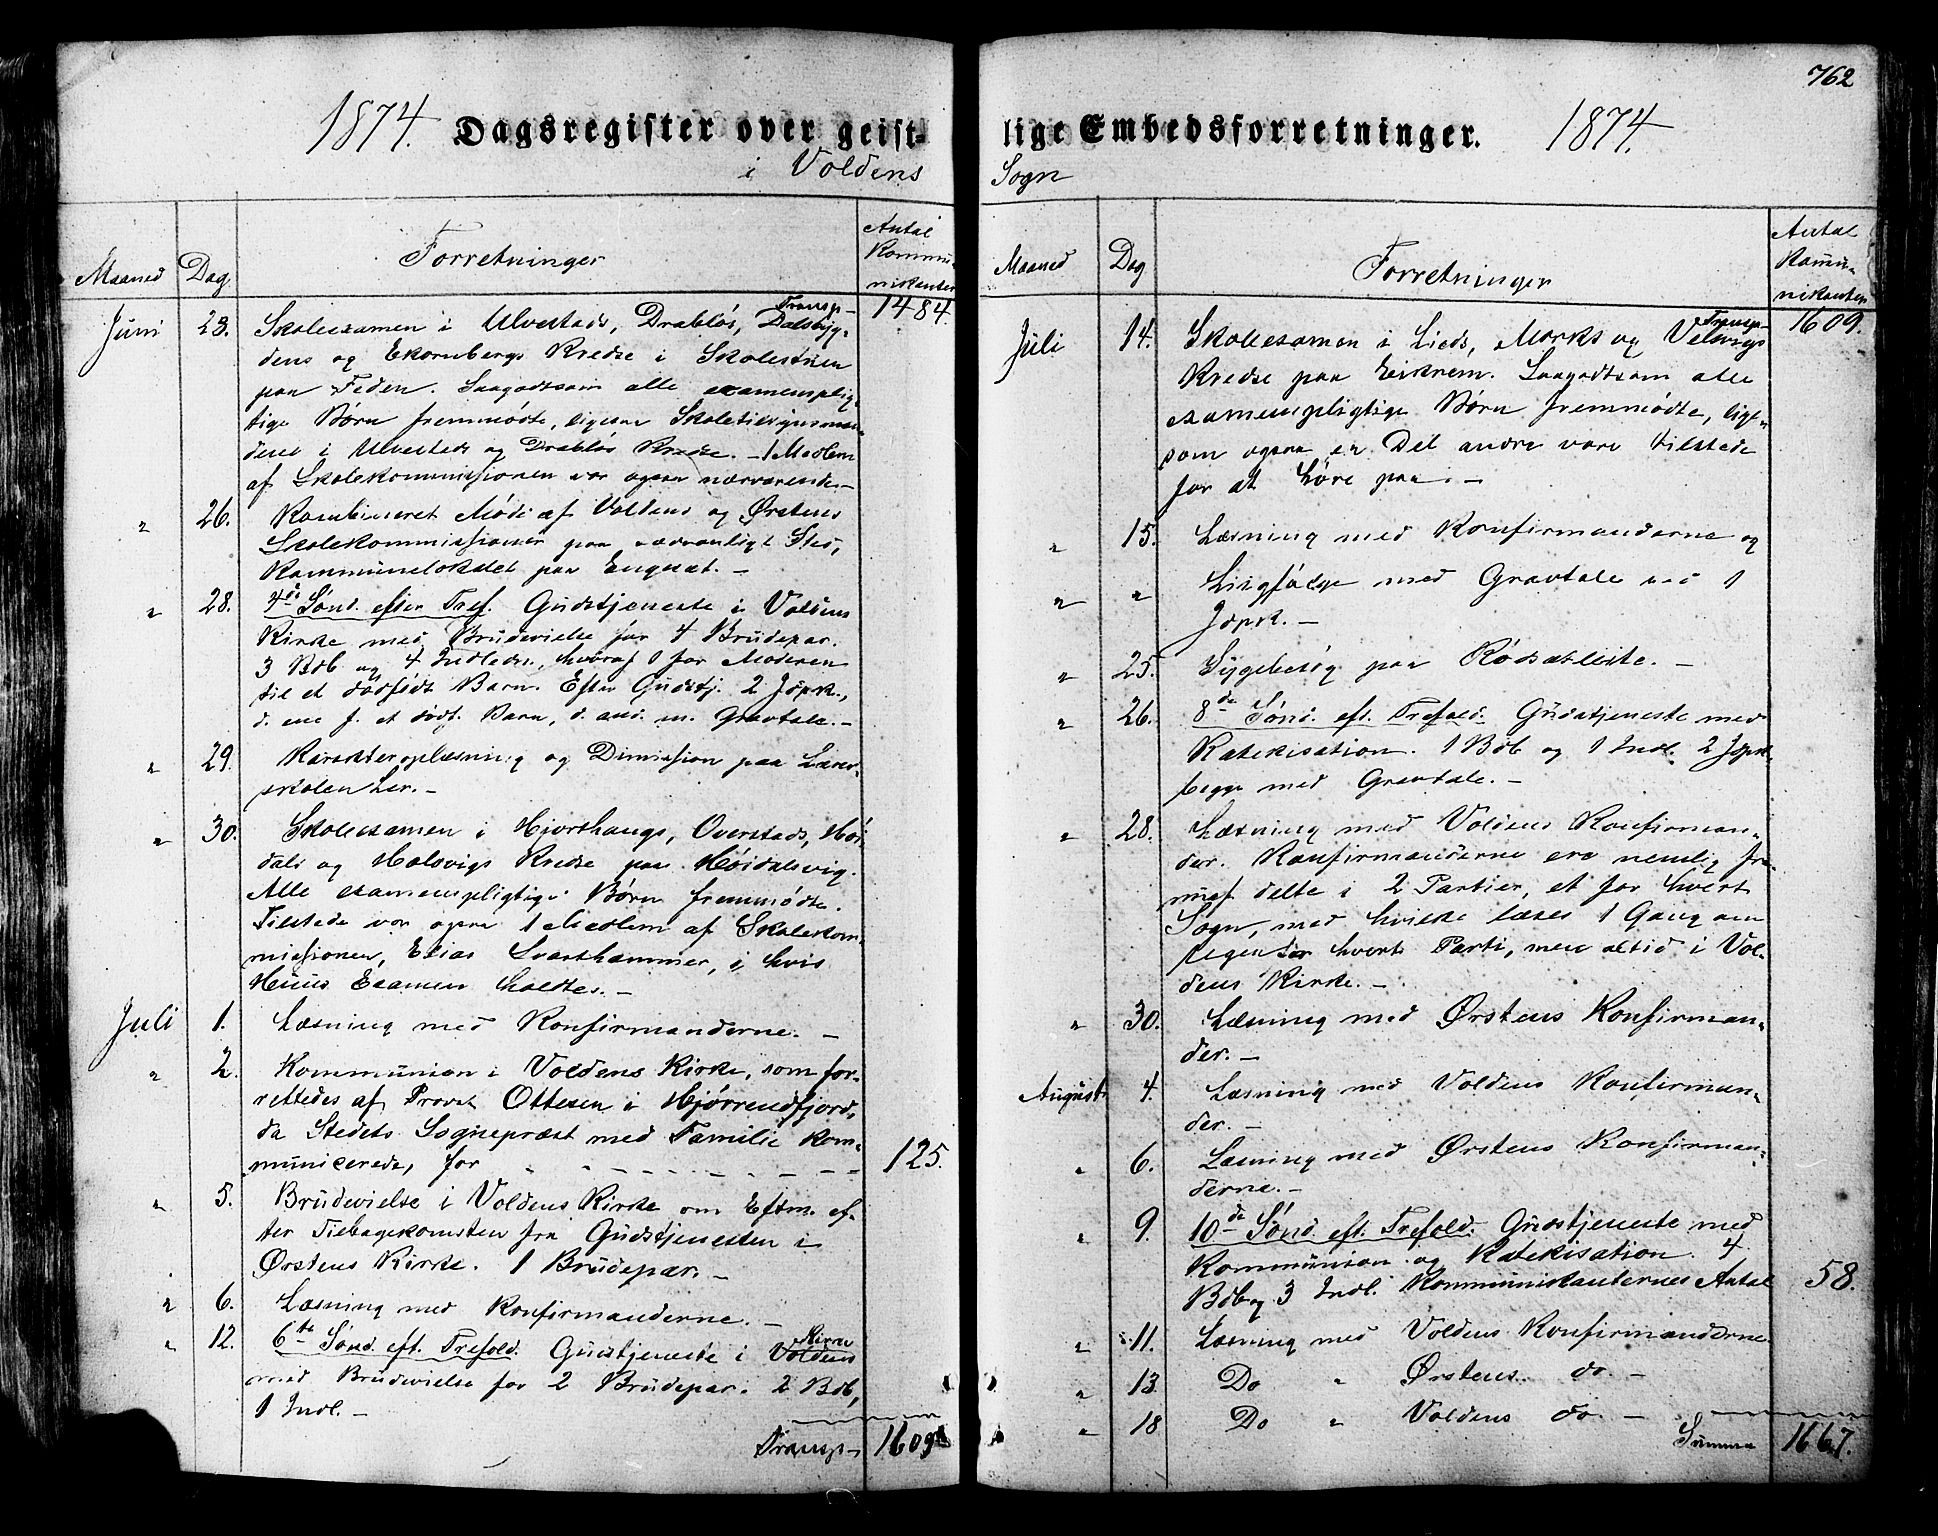 762
1874. Dagsregister over geist-
i Voldens
Maaned Dag Forretninger Antal
Kommu-
nikanter
Transp- 1484.
Juni 23. Skoleexamen i Ulvestads, Drabløs, Dalsbyg-
dens og Ekornbergs Kredse i Skolestuen
paa Feden. Saagodtsom alle examensplig-
tige Børn fremmødte, ligesaa Skoletilsynsmæn-
dene i Ulvestads og Drabløs Kredse. – 1 Medlem
af Skolekommissionen var ogsaa nærværende. –
" 26. Kombineret Møde af Voldens og Ørstens
Skolekommissioner paa sædvanligt Sted,
Kommunelokalet paa Engeset. –
" 28. 4de Sønd. efter Tref. Gudstjeneste i Voldens
Kirke med Brudevielse for 4 Brudepar.
3 Bdb og 4 Indledn., hvoraf 1 for Moderen
til et dødfødt Barn. Efter Gudstj. 2 Jdpk.,
d. ene f. et dødf. Barn, d. and. m. Gravtale. –
" 29. Karakteroplæsning og Dimission paa Lærer-
skolen her. –
" 30. Skoleexamen i Hjorthaugs, Overstads, Høi-
dals og Halsvigs Kredse paa Høidalsvig.
Alle examenspligtige Børn fremmødte.
Tilstede var ogsaa 1 Medlem af Skolekom-
missionen, Elias Svarthammer, i hvis
Huus Examen holdtes. –
Juli 1. Læsning med Konfirmanderne. –
" 2. Kommunion i Voldens Kirke, som for-
rettedes af Provst Ottesen i Hjørrendfjord,
da Stedets Sognepræst med Familie kom-
municerede, for – – – – – – 125.
" 5. Brudevielse i Voldens Kirke om Eftm. ef-
ter Tilbagekomsten fra Gudstjenesten i
Ørstens Kirke. 1 Brudepar. –
" 6. Læsning med Konfirmanderne. –
" 12. 6te Sønd. eft. Trefold. Gudstjeneste i Voldens Kirke
med Brudevielse for 2 Brudepar. 2 Bdb,
1 Indl. –
Transp– 1609
lige Embedsforretninger. 1874.
Sogn
Maaned Dag Forretninger Antal
Kommu-
nikanter
Transp– 1609.
Juli 14. Skoleexamen i Lieds, Morks og Velsvigs
Kredse paa Eikrem. Saagodtsom alle
examenspligtige Børn fremmødte, lige-
som ogsaa en Del andre vare tilstede
for at høre paa. –
" 15. Læsning med Konfirmanderne og
" " Liigfølge med Gravtale ved 1
Jdpk. –
" 25. Sygebesøg paa Rødsætleite. –
" 26. 8de Sønd. eft. Trefold. Gudstjeneste med
Katekisation. 1 Bdb og 1 Indl. 2 Jdpk.
begge med Gravtale. –
" 28. Læsning med Voldens Konfirman-
der. Konfirmanderne ere nemlig
delte i 2 Partier, et for hvert
Sogn, med hvilke læses 1 Gang om
Ugen for hvert Parti, men altid i Vol-
dens Kirke. –
" 30. Læsning med Ørstens Konfirman-
der. –
August 4. Læsning med Voldens Konfirman-
der. –
" 6. Læsning med Ørstens Konfirman-
derne. –
" 9. 10de Sønd. eft. Trefold. Gudstjeneste med
Kommunion og Katekisation. 4
Bdb og 3 Indl. Kommunikanternes Antal 58.
" 11. Læsning med Voldens Konfirmanderne
" 13 Do " Ørstens do. –
" 18 Do " Voldens do. –
Summa 1667.